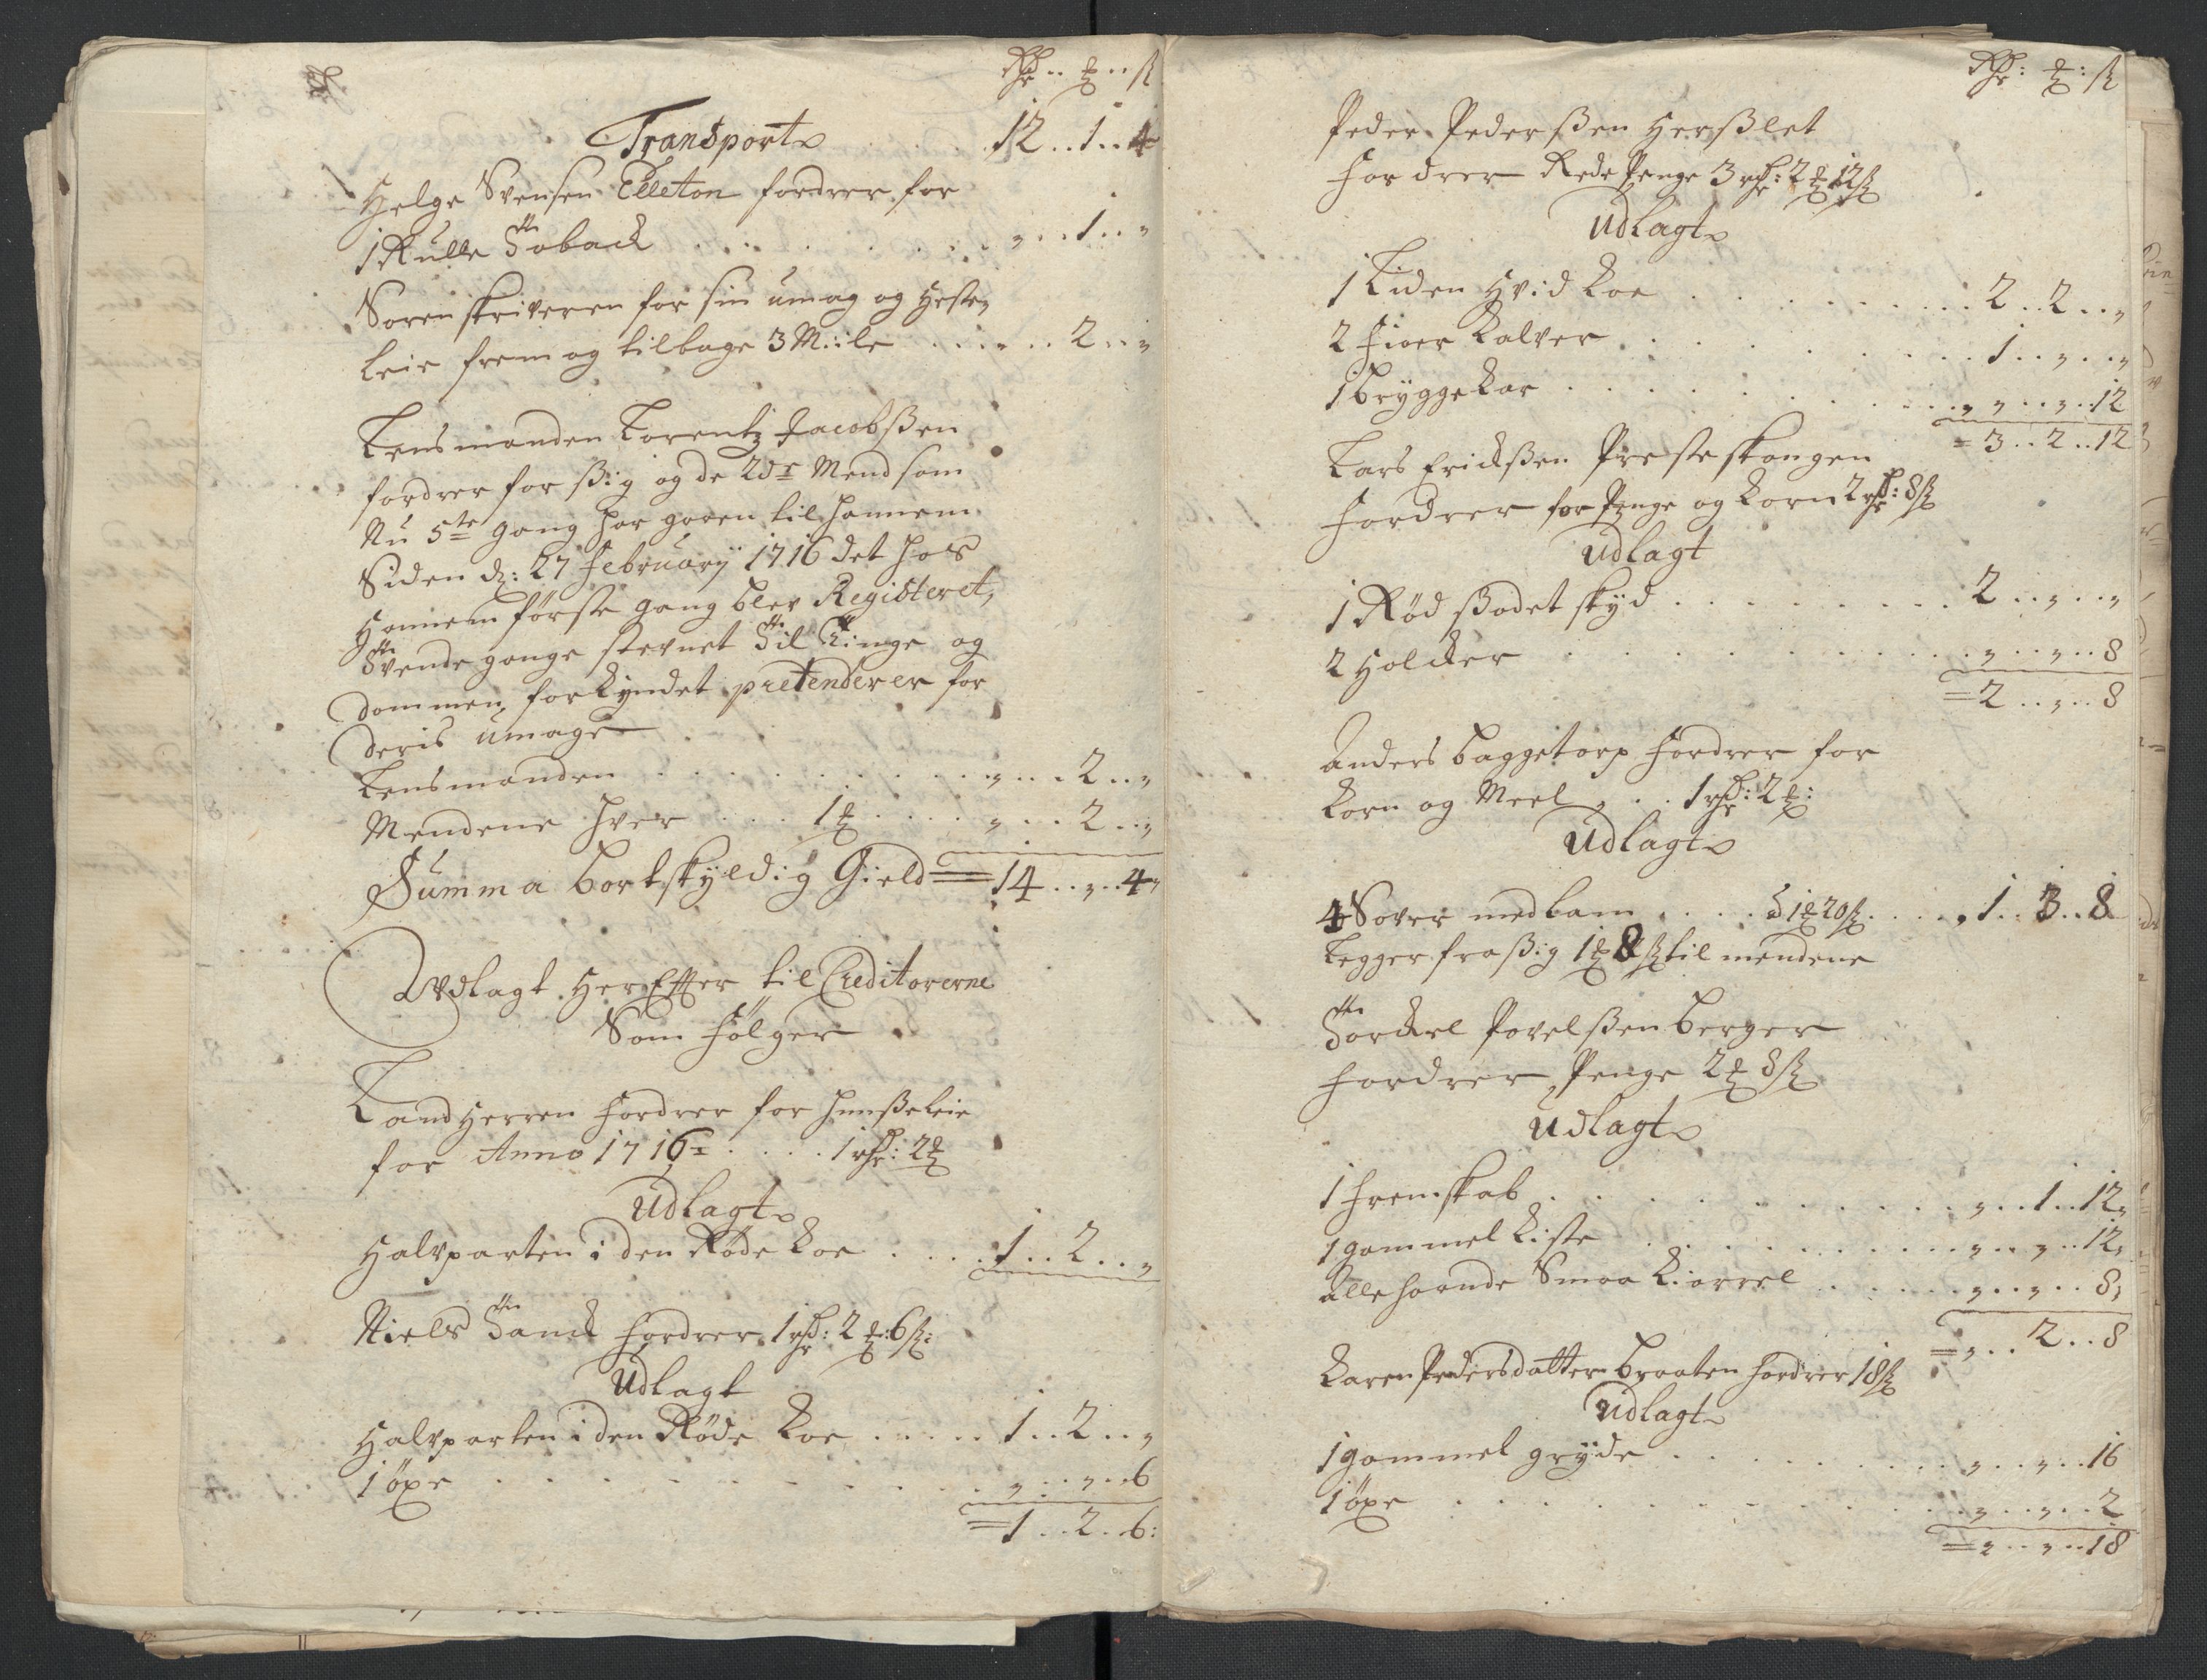 Rdr: .. ɱ .. ß
Transport . . . 12 .. 1 .. 4
Helge Svensen Elleton fordrer for
1 Rulle Toback . . . . . „ .. 1 .. „
Sorenskriveren for sin umag og Heste,
leie frem og tilbage 3 Miile . . . „ .. 2 .. „
Lensmanden Lorentz Jacobßen
fordrer for ßig og de 2de Mend som
Nu 5te gang har gaaen til hannem
Siden d: 27 Februarij 1716 det hos
Hannem første gang blev Registeret,
Tvende gange stevnet Til Tinge og
dommen forkyndet pretenderer for
deris umage
Lensmanden . . . . . „ .. 2 .. „
Mendene hver . . . 1 ɱ . . . „ .. 2 .. „
Summa bortskyldig Gield = 14 .. „ .. 4
Udlagt HerEffter til Creditorerne
Som Følger
LandHerren Fordrer for hunßeleie
for Anno 1716 . . . . 1 rdr: 2 ɱ
Udlagt
Halvparten i den Røde Koe . . . . 1 .. 2 .. „
Niels Tanck fordrer 1 rdr: 2 ɱ: 6 ß:
Udlagt
Halvparten i den Røde Koe . . . . . 1 .. 2 .. „
1 øxe . . . . . „ .. „ .. 6
= 1 .. 2 .. 6:
Rdr: ɱ: ß
Peder Pederßen Herßlet
Fordrer Rede Penge 3 rdr: 2 ɱ 12 ß
Udlagt
1 Liden Hvid Koe . . . . . 2 .. 2 .. „
2 Fioer Kalver . . . . . 1 .. „ .. „
1 bryggekar . . . . . „ .. „ .. 12
= 3 .. 2 .. 12
Lars Erickßen Presteskongen
Fordrer for Penge og Korn 2 rdr: 8 ß
Udlagt
1 Rød ßadet skyd . . . . . 2 .. „ .. „
2 Holcker . . . . . „ .. „ .. 8
= 2 .. „ .. 8
Anders baggetorp Fordrer for
Korn og Meel . . . 1 rdr: 2 ɱ:
Udlagt
4 Sover med lam . . . . à 1 ɱ 20 ß . . . . 1 .. 3 .. 8
Legger fra ßig 1 ɱ 8 ß til mendene
Torckel Povelßen berger
Fordrer Penge 2 ɱ 8 ß
Udlagt
1 Fremskab . . . . . „ .. 1 .. 12
1 gammel Kiste . . . . . „ .. „ .. 12
Allehaande Smaa Kiørrel . . . . . „ .. „ .. 8
= „ .. 2 .. 8
Karen Pedersdatter braaten Fordrer 18 ß
Udlagt
1 gammel gryde . . . . . „ .. „ .. 16
1 øxe . . . . . „ .. „ .. 2
= „ .. „ .. 18